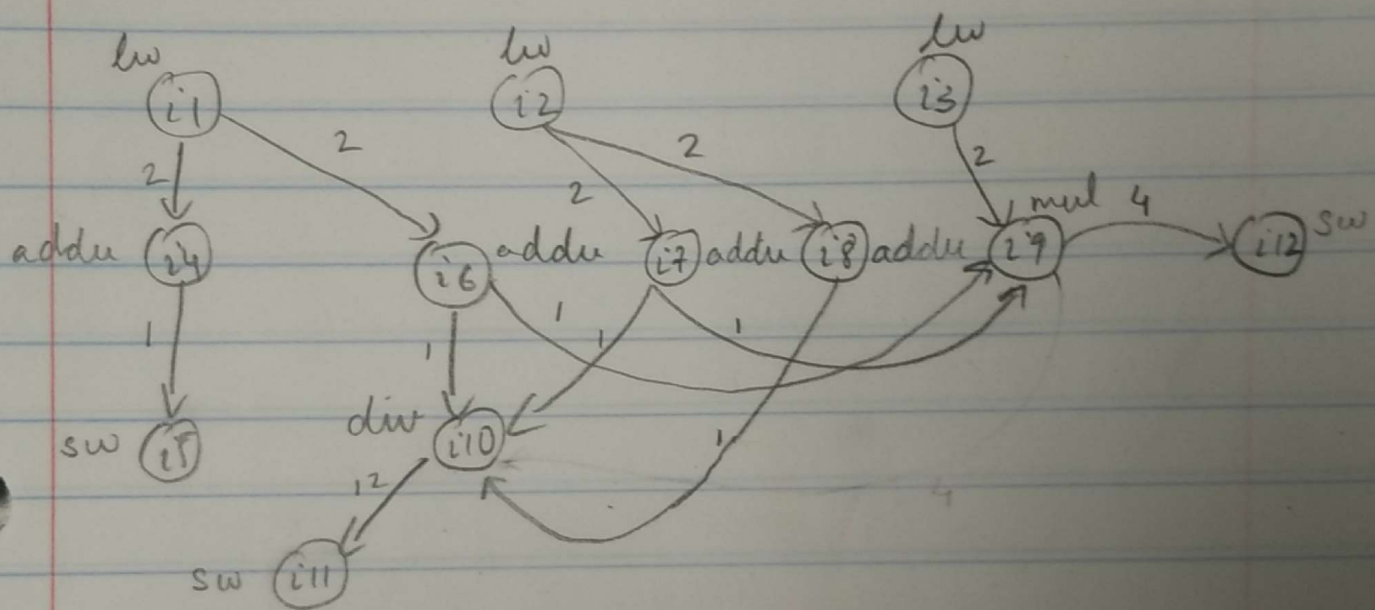 lw lw lw
i1 i2 i3
2 2 2 2 2
addu i4 i6 addu i7 addu i8 addu i9 mul 4 i12 sw
1 1 1 1 1 1
sw i5 div i10
12
sw i11
4